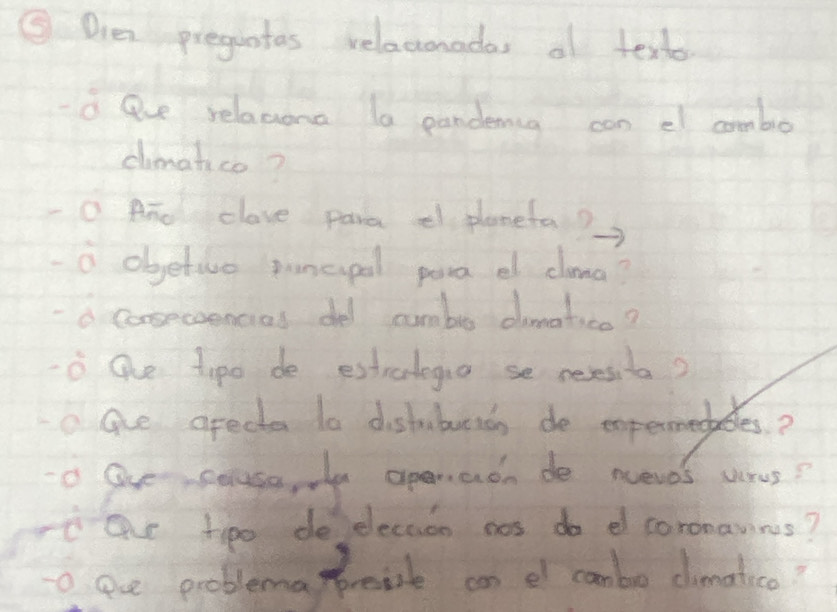 ⑤ Diez preguntas relacionadas al texto.
- ¿ Que relaciona la pandemia con el cambio
climatico?
- ¿ Año clave para el planeta? →
- ¿ objetivo principal para el clima?
- ¿ consecuencias del cambio climatico?
- ¿ Que tipo de estrategia se nesesita?
- ¿ Que afecta la distribución de enfermedades.?
- ¿ Que causa la aparición de nuevos virus?
- ¿ Que tipo de elección nos da el coronavirus?
- ¿ Que problema persiste con el cambio climatico?